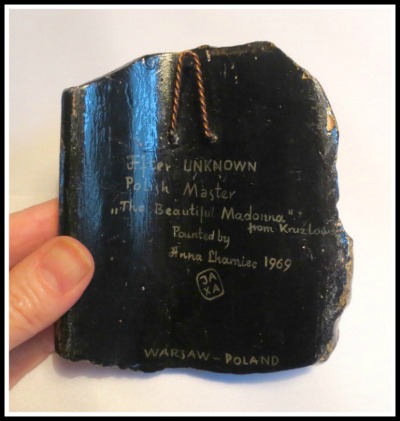 After UNKNOWN
Polish Master
„The Beautiful Madonna"
from Kruzlowa
Painted by
Anna Chamiec 1969
JA
XA
WARSAW – POLAND